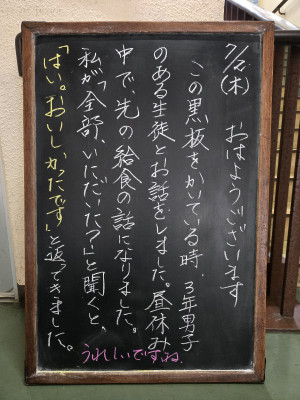 7/12(木) おはようございます
この黒板をかいている時、3年男子
のある生徒とお話をしました。昼休み
中で、先の給食の話になりました。
私が「全部、いただいた?」と聞くと、
「はい。おいしかったです」と返ってきました。
うれしいですね.